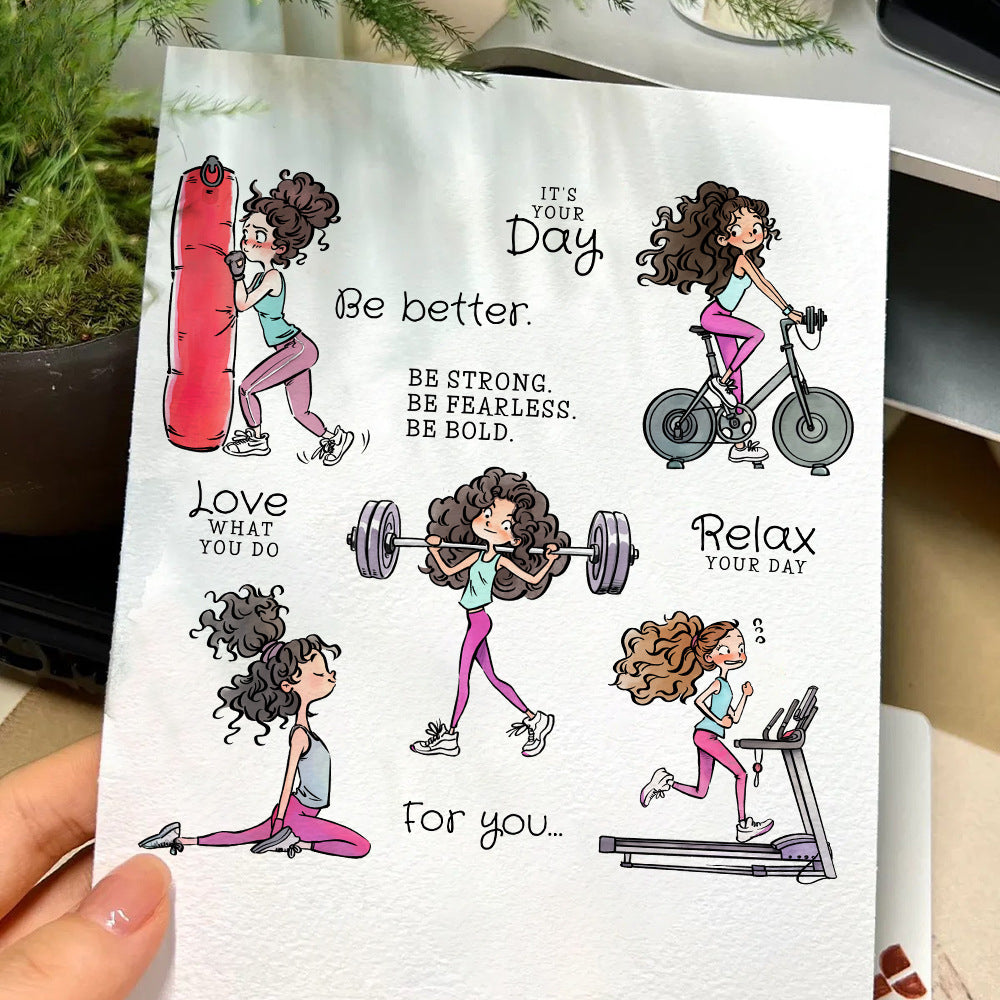 IT'S
YOUR
Day
Be better.
BE STRONG.
BE FEARLESS.
BE BOLD.
Love
WHAT
YOU DO
Relax
YOUR DAY
For you...